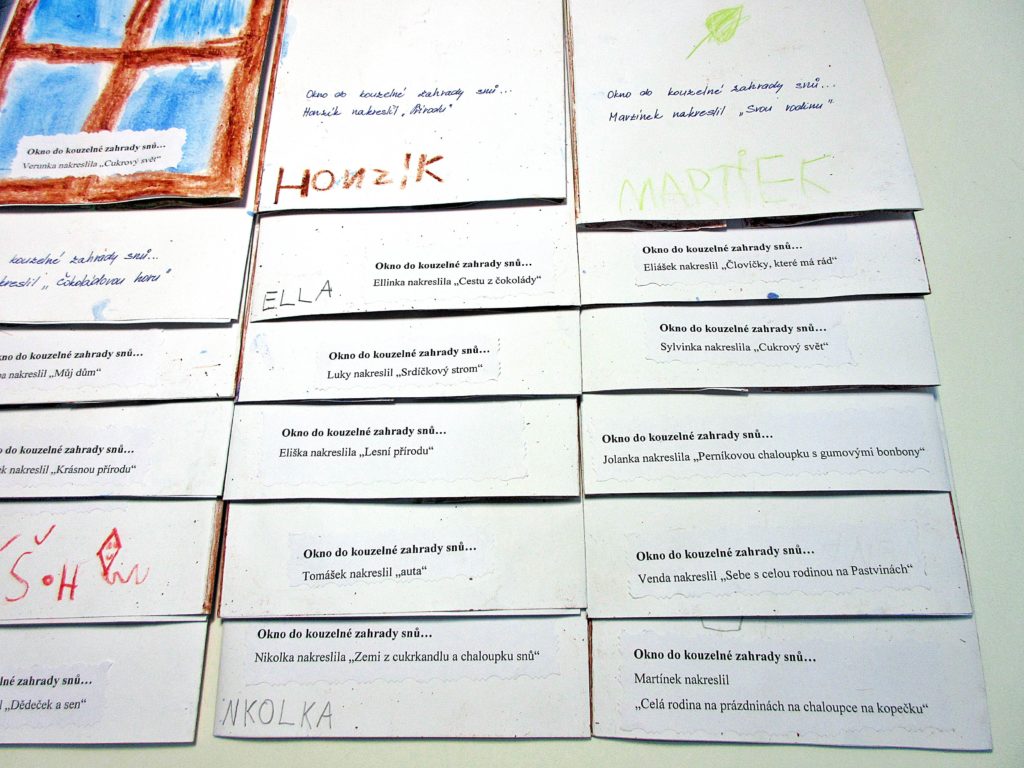 Okno do kouzelné zahrady snů...
Verunka nakreslila „Cukrový svět“
kouzelné zahrady snů...
„Čokoládovou horu“
do kouzelné zahrady snů...
nakreslil „Můj dům“
do kouzelné zahrady snů...
nakreslil „Krásnou přírodu“
zahrady snů...
„Dědeček a sen“
Okno do kouzelné zahrady snů...
Honzík nakreslil „Přírodu“
HONZÍK
Okno do kouzelné zahrady snů...
Ellinka nakreslila „Cestu z čokolády“
ELLA
Okno do kouzelné zahrady snů...
Luky nakreslil „Srdíčkový strom“
Okno do kouzelné zahrady snů...
Eliška nakreslila „Lesní přírodu“
Okno do kouzelné zahrady snů...
Tomášek nakreslil „auta“
Okno do kouzelné zahrady snů...
Nikolka nakreslila „Zemi z cukrkandlu a chaloupku snů“
NKOLKA
Okno do kouzelné zahrady snů...
Martínek nakreslil „Svou rodinu“
MARTIEK
Okno do kouzelné zahrady snů...
Eliášek nakreslil „Človíčky, které má rád“
Okno do kouzelné zahrady snů...
Sylvinka nakreslila „Cukrový svět“
Okno do kouzelné zahrady snů...
Jolanka nakreslila „Perníkovou chaloupku s gumovými bonbony“
Okno do kouzelné zahrady snů...
Venda nakreslil „Sebe s celou rodinou na Pastvinách“
Okno do kouzelné zahrady snů...
Martínek nakreslil
„Celá rodina na prázdninách na chaloupce na kopečku“